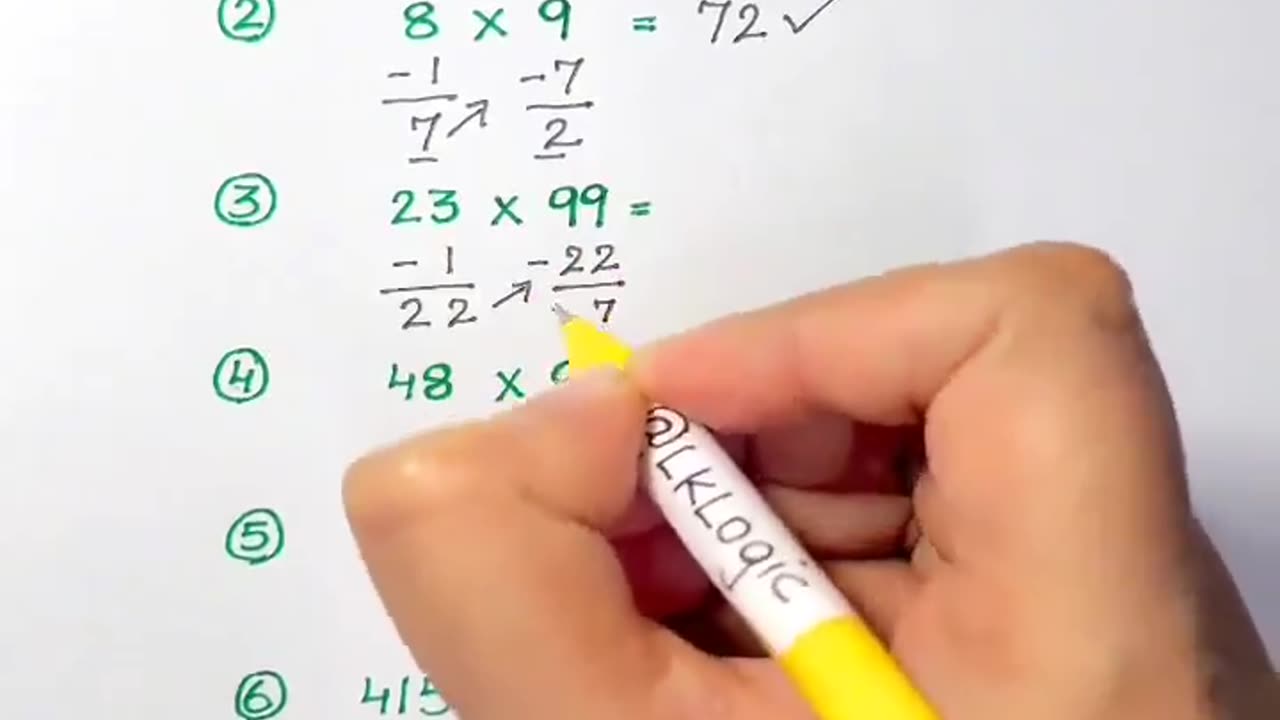 ② 8 × 9 = 72 ✓
-1 -7
7 ↗ 2
③ 23 × 99 =
-1 -22
22 ↗ 7
④ 48 ×
⑤
⑥ 415
@LKLogic